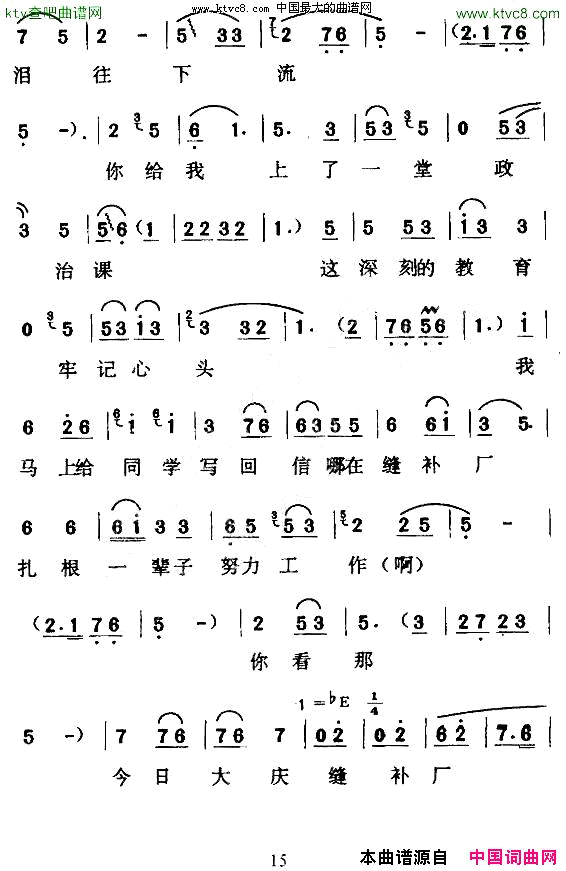 ktv查吧曲谱网
www.ktvc8.com 中国最大的曲谱网
www.ktvc8.com
7 5 | 2 - | 5 33 | 2 76 | 5 - | (2.1 76 |
泪 往 下 流
5 -). | 2 3 5 | 6 1. | 5. 3 | 53 3 5 | 0 53 |
你 给 我 上 了 一 堂 政
3 5 | 5 6 (1 | 22 32 | 1.) 5 | 5 53 | i3 3 |
治 课 这 深 刻 的 教 育
0 3 5 | 53 i3 | 2 3 32 | 1. (2 | 76 56 | 1.) i |
牢 记 心 头 我
6 26 | 6 i i | 3 76 | 63 55 | 6 6i | 3 5. |
马 上 给 同 学 写 回 信 哪 在 缝 补 厂
6 6 | 6i 33 | 65 3 53 | 5 2 25 | 5 - |
扎 根 一 辈 子 努 力 工 作 (啊)
(2.1 76 | 5 -) | 2 53 | 5. (3 | 27 23 |
你 看 那
1=♭E 1/4
5 -) | 7 76 | 76 7 | 02 | 02 | 62 | 7.6 |
今 日 大 庆 缝 补 厂
15
本曲谱源自 中国词曲网